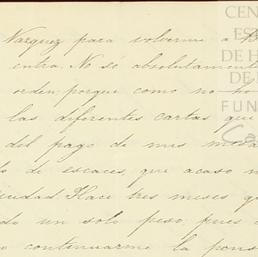 Vazquez para volverme a
entra. No sé absolutamente
orden; porque como no ho
las diferentes cartas que
del pago de mis modo
lo de escaces, que acaso n
ciudad. Hace tres meses q
do un solo peso; pues
continuarme la pens
CEN
ES
DE H
DE
FUN
Ca